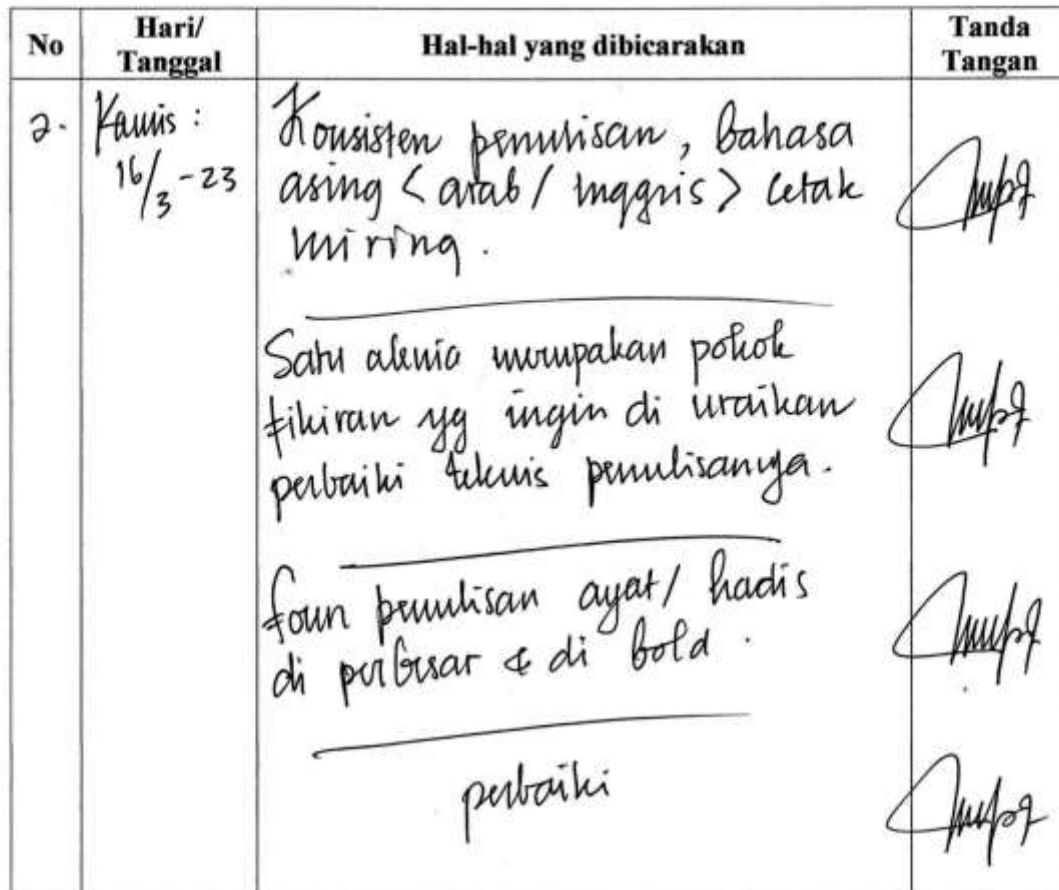 No
Hari/
Tanggal
Hal-hal yang dibicarakan
Tanda
Tangan
2. Kamis :
16/3 - 23
Konsisten penulisan, bahasa
asing < arab / inggris > cetak
miring.
Satu alenia merupakan pokok
fikiran yg ingin di uraikan
perbaiki teknis penulisannya.
penulisan ayat / hadis
di perbesar & di bold.
perbaiki